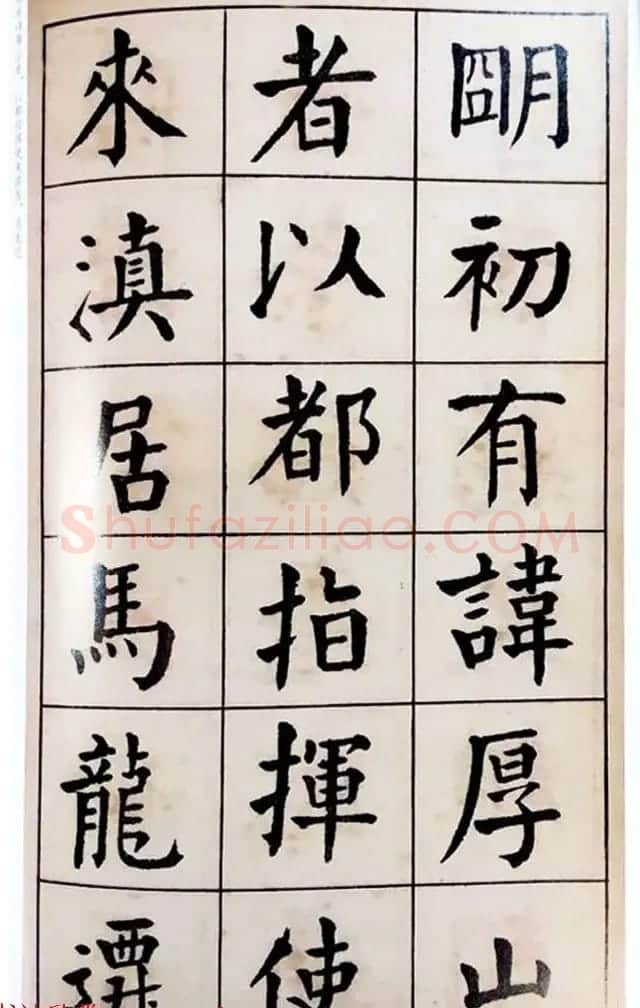 朙初有諱厚山
者以都指揮使
來滇居馬龍遷
Shufaziliao.COM